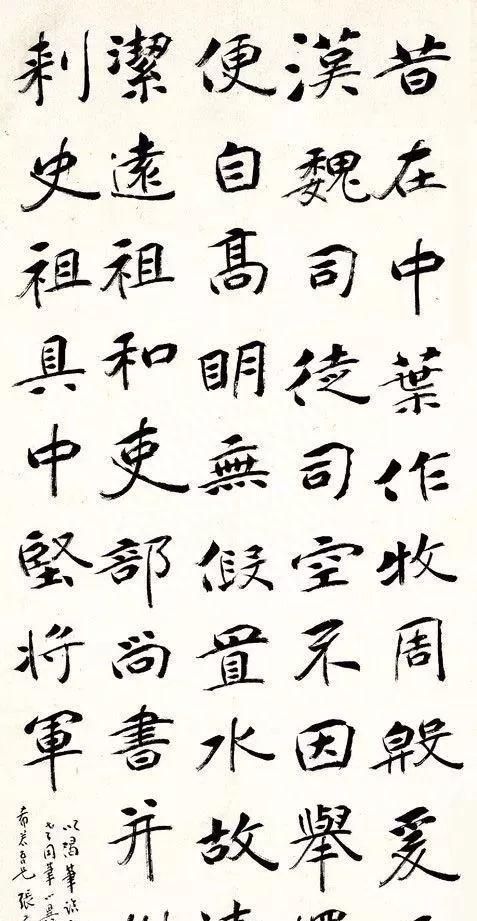 昔在中葉作牧周殷爰
漢魏司徒司空不因舉
便自高明無假置水故
潔遠祖和吏部尚書并
刺史祖具中堅將軍
以渴筆